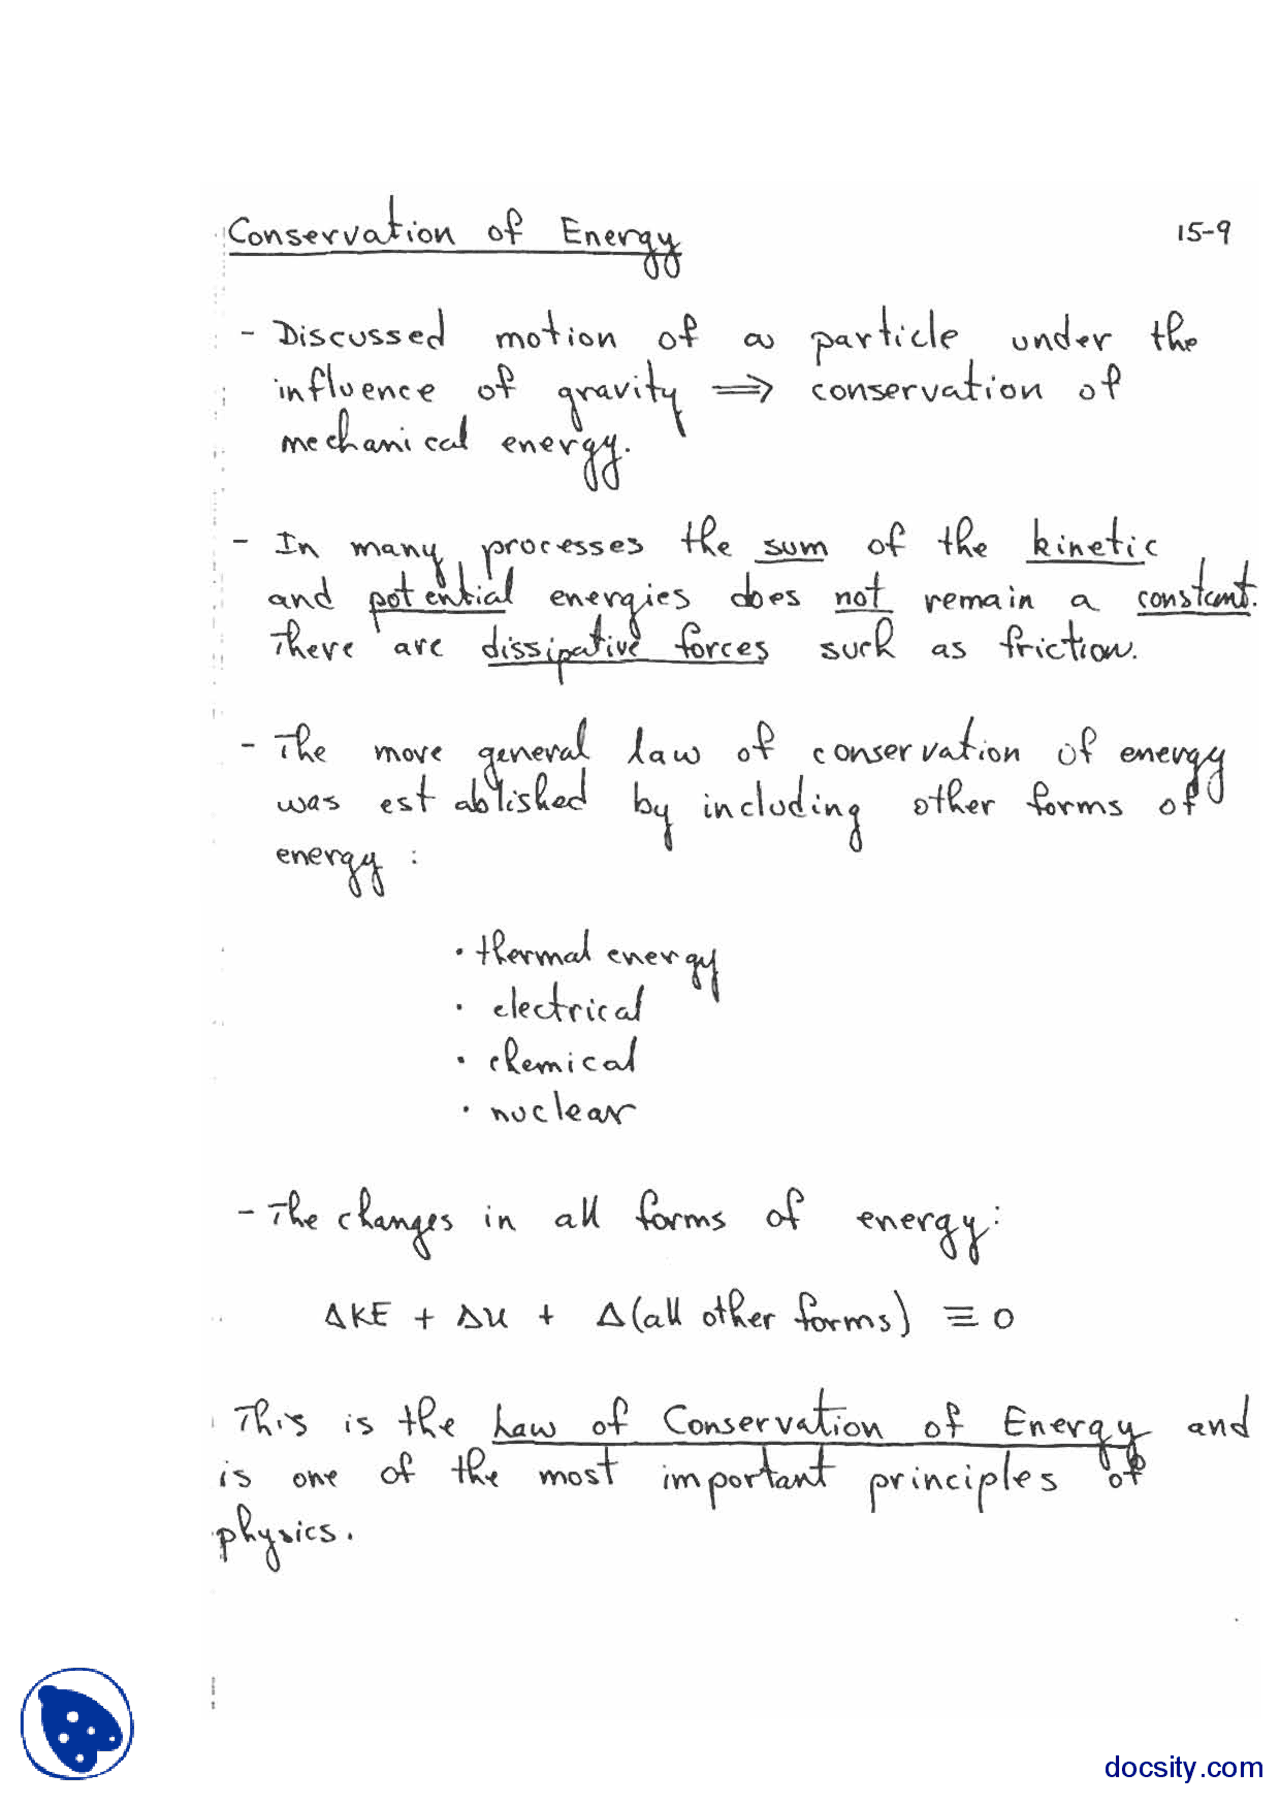 Conservation of Energy 15-9
- Discussed motion of a particle under the
influence of gravity ⟹ conservation of
mechanical energy.
- In many processes the sum of the kinetic
and potential energies does not remain a constant.
There are dissipative forces such as friction.
- The more general law of conservation of energy
was established by including other forms of
energy :
• thermal energy
• electrical
• chemical
• nuclear
- The changes in all forms of energy:
ΔKE + ΔU + Δ(all other forms) ≡ 0
This is the Law of Conservation of Energy and
is one of the most important principles of
physics.
docsity.com